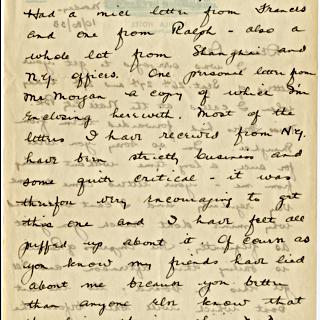 Had a nice letter from Frances
and one from Ralph - also a
whole lot from Shanghai and
N.Y. offices. One personal letter from
Mr Morgan a copy of which I'm
enclosing herewith. Most of the
letters I have received from N.Y.
have been strictly business and
some quite critical - it was
therefore very encouraging to get
this one and I have felt all
puffed up about it. Of course as
you know my friends have lied
about me because you better
than anyone else know that